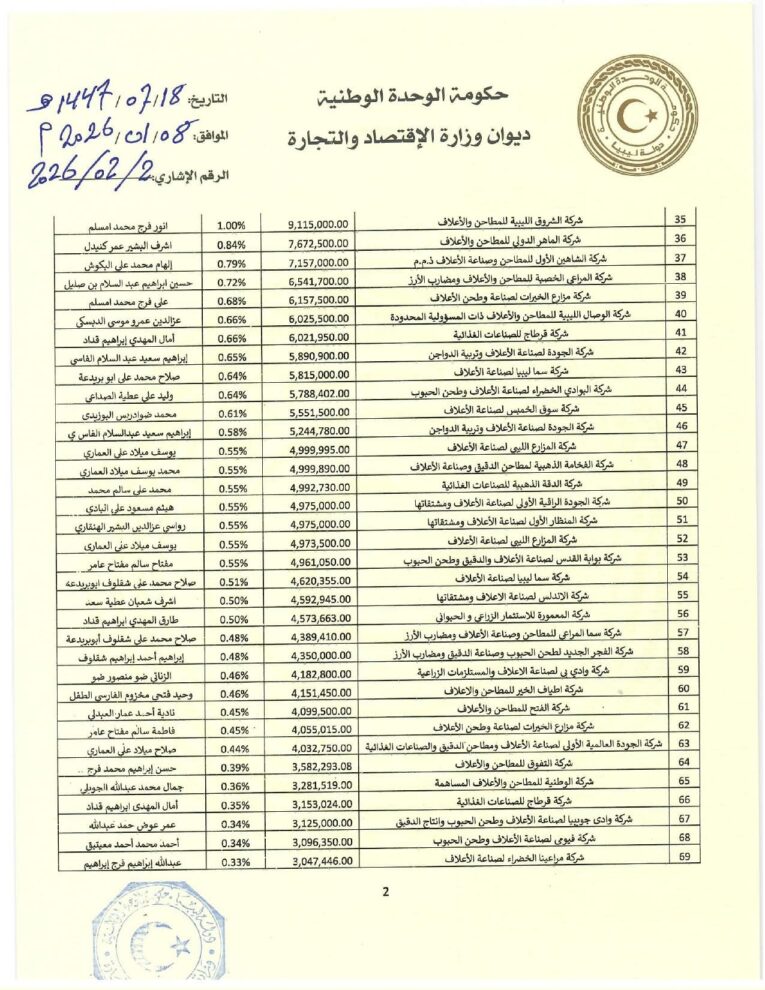 حكومة الوحدة الوطنية
ديوان وزارة الإقتصاد والتجارة
التاريخ: 1447/07/18 هـ
الموافق: 2026/01/08 م
الرقم الإشاري: 2026/02/2
حكومة الوحدة الوطنية
دولة ليبيا
35 شركة الشروق الليبية للمطاحن والأعلاف 9,115,000.00 1.00% انور فرج محمد امسلم
36 شركة الماهر الدولي للمطاحن والأعلاف 7,672,500.00 0.84% اشرف البشير عمر كنيدل
37 شركة الشاهين الأول للمطاحن وصناعة الأعلاف ذ.م.م 7,157,000.00 0.79% إلهام محمد علي البكوش
38 شركة المراعي الخصبة للمطاحن والأعلاف ومضارب الأرز 6,541,700.00 0.72% حسين ابراهيم عبد السلام بن صليل
39 شركة مزارع الخيرات لصناعة وطحن الأعلاف 6,157,500.00 0.68% علي فرج محمد امسلم
40 شركة الوصال الليبية للمطاحن والأعلاف ذات المسؤولية المحدودة 6,025,500.00 0.66% عزالدين عمرو موسي الديسكي
41 شركة قرطاج للصناعات الغذائية 6,021,950.00 0.66% أمال المهدي إبراهيم قداد
42 شركة الجودة لصناعة الأعلاف وتربية الدواجن 5,890,900.00 0.65% إبراهيم سعيد عبد السلام الفاسي
43 شركة سما ليبيا لصناعة الأعلاف 5,815,000.00 0.64% صلاح محمد علي ابو بريدعة
44 شركة البوادي الخضراء لصناعة الأعلاف وطحن الحبوب 5,788,402.00 0.64% وليد علي عطية الصداعي
45 شركة سوق الخميس لصناعة الأعلاف 5,551,500.00 0.61% محمد ضوادريس البوزيدى
46 شركة الجودة لصناعة الأعلاف وتربية الدواجن 5,244,780.00 0.58% إبراهيم سعيد عبدالسلام الفاس ي
47 شركة المزارع الليبي لصناعة الأعلاف 4,999,995.00 0.55% يوسف ميلاد علي العماري
48 شركة الفخامة الذهبية لمطاحن الدقيق وصناعة الأعلاف 4,999,890.00 0.55% محمد يوسف ميلاد العماري
49 شركة الدقة الذهبية للصناعات الغذائية 4,992,730.00 0.55% محمد علي سالم محمد
50 شركة الجودة الراقية الأولى لصناعة الأعلاف ومشتقاتها 4,975,000.00 0.55% هيثم مسعود علي البادي
51 شركة المنظار الأول لصناعة الأعلاف ومشتقاتها 4,975,000.00 0.55% رواسي عزالدين البشير الهنقاري
52 شركة المزارع الليبي لصناعة الأعلاف 4,973,500.00 0.55% يوسف ميلاد على العمارى
53 شركة بوابة القدس لصناعة الأعلاف والدقيق وطحن الحبوب 4,961,050.00 0.55% مفتاح سالم مفتاح عامر
54 شركة سما ليبيا لصناعة الأعلاف 4,620,355.00 0.51% صلاح محمد علي شقلوف ابوبريدعه
55 شركة الاندلس لصناعة الاعلاف ومشتقاتها 4,592,945.00 0.50% اشرف شعبان عطية سعد
56 شركة المعمورة للاستثمار الزراعي و الحيواني 4,573,663.00 0.50% طارق المهدي ابراهيم قداد
57 شركة سما المراعي للمطاحن وصناعة الأعلاف ومضارب الأرز 4,389,410.00 0.48% صلاح محمد علي شقلوف أبوبريدعة
58 شركة الفجر الجديد لطحن الحبوب وصناعة الدقيق ومضارب الأرز 4,350,000.00 0.48% إبراهيم أحمد إبراهيم شقلوف
59 شركة وادي بي لصناعة الاعلاف والمستلزمات الزراعية 4,182,800.00 0.46% الزناتي ضو منصور ضو
60 شركة اطياف الخير للمطاحن والاعلاف 4,151,450.00 0.46% وحيد فتحي مخزوم الفارسي الطفل
61 شركة الفتح للمطاحن والأعلاف 4,099,500.00 0.45% نادية أحمد عمار العبدلي
62 شركة مزارع الخيرات لصناعة وطحن الأعلاف 4,055,015.00 0.45% فاطمة سالم مفتاح عامر
63 شركة الجودة العالمية الأولى لصناعة الأعلاف ومطاحن الدقيق والصناعات الغذائية 4,032,750.00 0.44% صلاح ميلاد علي العماري
64 شركة التفوق للمطاحن والأعلاف 3,582,293.08 0.39% حسن إبراهيم محمد فرج
65 شركة الوطنية للمطاحن والأعلاف المساهمة 3,281,519.00 0.36% جمال محمد عبدالله الجويلي
66 شركة قرطاج للصناعات الغذائية 3,153,024.00 0.35% أمال المهدى ابراهيم قداد
67 شركة وادى جوبيبا لصناعة الأعلاف وطحن الحبوب وانتاج الدقيق 3,125,000.00 0.34% عمر عوض حمد عبدالله
68 شركة فيومي لصناعة الأعلاف وطحن الحبوب 3,096,350.00 0.34% أحمد محمد أحمد معيتيق
69 شركة مراعينا الخضراء لصناعة الأعلاف 3,047,446.00 0.33% عبدالله إبراهيم فرج إبراهيم
2